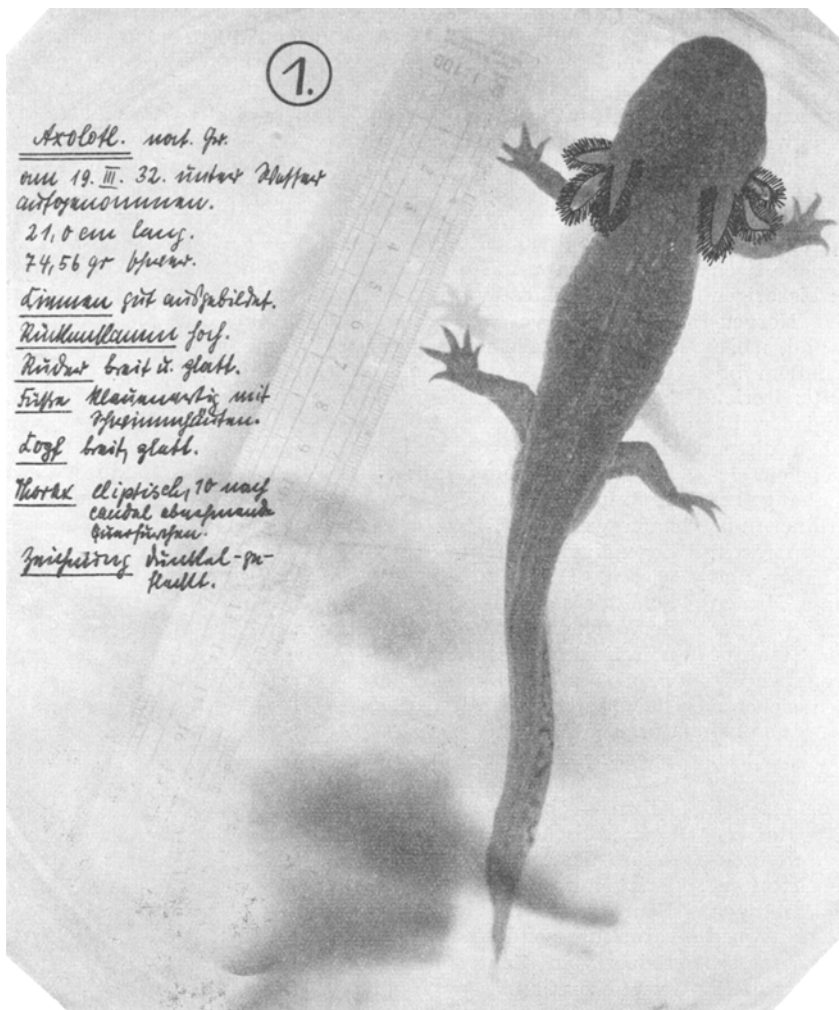 1.
Axolotl. nat. Gr.
am 19. III. 32. unter Wasser
aufgenommen.
21,0 cm lang.
74,56 gr schwer.
Kiemen gut ausgebildet.
Rückenkamm hoch.
Ruder breit u. glatt.
Füße klauenartig mit
Schwimmhäuten.
Kopf breit, glatt.
Thorax eliptisch, 10 nach
caudal abnehmende
Querfurchen.
Zeichnung dunkel-ge-
fleckt.
1:100